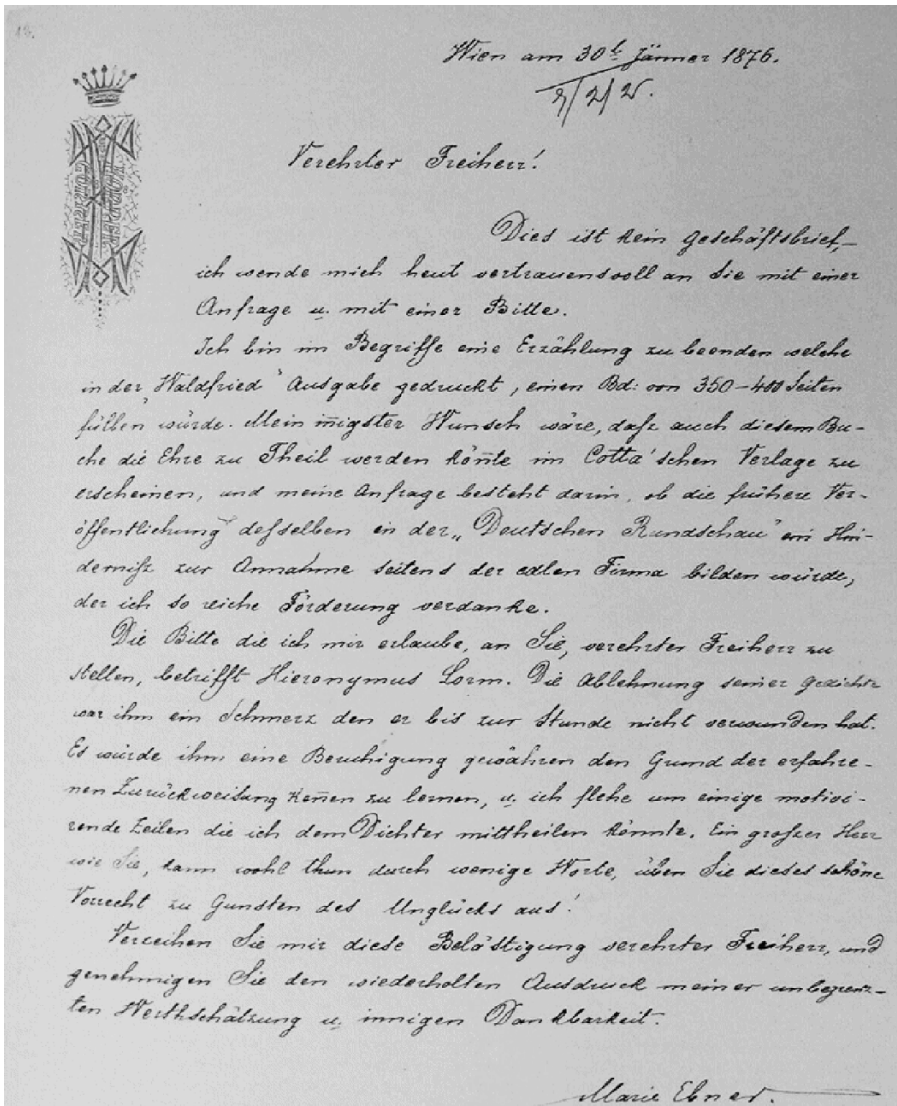 13.
Wien am 30t Jänner 1876.
2/2/
Verehrter Freiherr!
Dies ist kein Geschäftsbrief,–
ich wende mich heut vertrauensvoll an Sie mit einer
Anfrage u. mit einer Bitte.
Ich bin im Begriffe eine Erzählung zu beenden welche
in der „Waldfried" Ausgabe gedruckt, einen Bd: von 350–400 Seiten
füllen würde. Mein iñigster Wunsch wäre, daß auch diesem Bu-
che die Ehre zu Theil werden köñte im Cotta'schen Verlage zu
erscheinen, und meine Anfrage besteht darin, ob die frühere Ver-
öffentlichung desselben in der „Deutschen Rundschau" ein Hin-
derniß zur Annahme seitens der edlen Firma bilden würde,
der ich so reiche Förderung verdanke.
Die Bitte die ich mir erlaube, an Sie, verehrter Freiherr zu
stellen, betrifft Hieronymus Lorm. Die Ablehnung seiner Gedichte
war ihm ein Schmerz den er bis zur Stunde nicht verwunden hat.
Es würde ihm eine Beruhigung gewähren den Grund der erfahre-
nen Zurückweisung keñen zu lernen, u. ich flehe um einige motivi-
rende Zeilen die ich dem Dichter mittheilen könnte. Ein großer Herr
wie Sie, kann wohl thun durch wenige Worte, üben Sie dieses schöne
Vorrecht zu Gunsten des Unglücks aus!
Verzeihen Sie mir diese Belästigung verehrter Freiherr, und
genehmigen Sie den wiederholten Ausdruck meiner unbegrenz-
ten Werthschätzung u. innigen Dankbarkeit.
Marie Ebner.